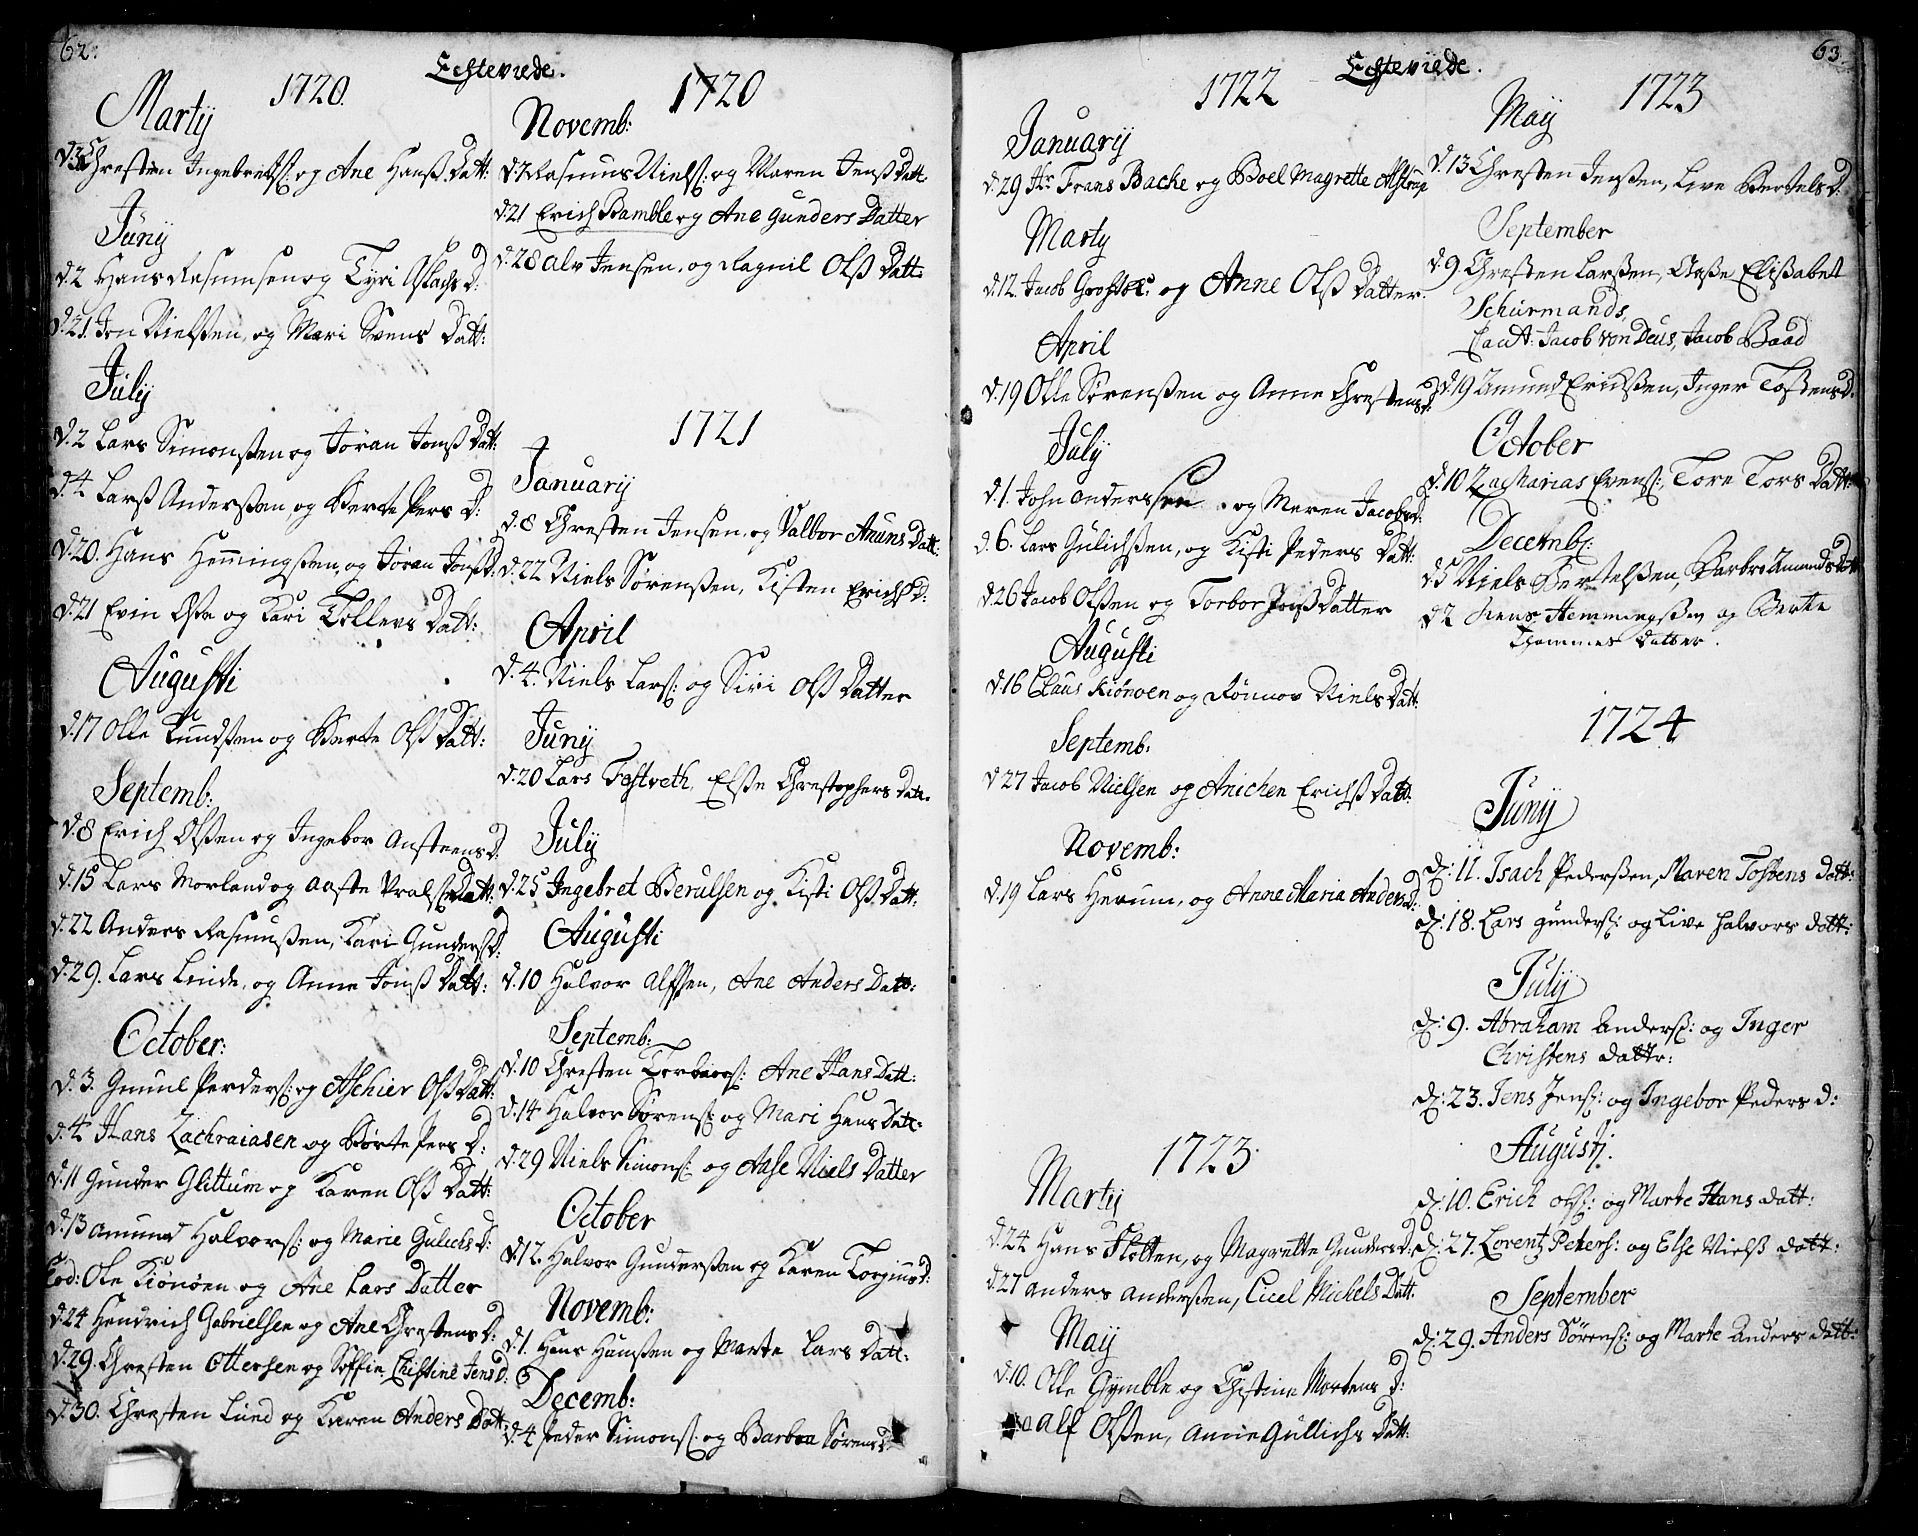 62.
Echteviede.
1720.
Martij
d. Chresten Ingebretß: og Ane Hanß Datt:
Junij
d.2 Hans Rasmusen og Tyri Aslachs D:
d.21. Jon Nielßen, og Mari Svens Datt:
July
d.2 Lars Simonßen og Jöran Jonß Datt:
d.4. Larß Anderßen, og Berte Pers D:
d.20. Hans Hemingßen, og Jöran Jonß D:
d.21 Evin og Kari Tollevs Datt:
Augusti
d.17 Olle Knudßen og Berte Olß Datt:
Septemb:
d.8 Erich Olßen og Ingebor Ansteens D:
d.15 Lars Morland og Aaste Datt:
d.22 Anders Rasmußen, Kari Gunders D:
d.29. Lars Linde, og Anne Jonß Datt:
October:
d.3. Gunul Pederß: og Aschier Olß Datt:
d.4 Hans Zachraiasen og Börte Pers D:
d.11 Gunder Glittum og Karen Olß Datt:
d.13 Amund Halvorß: og Marie Gulichs D:
Eod: Ole Kiönöen og Ane Lars Datter
d.24 Hendrich Gabrielsen og Ane Chrestens D:
d.29. Chresten Ottersen og Soffie Christine Jens D:
d.30. Chresten Lund og Karen Anders Datt:
1720
Novemb:
d.7 Rasmus Nielß: og Maren Jenß Datt
d.21 Erich Bamble og Ane Gunders Datter
d.28 Alv Jensen, og Ragnil Olß Datt:
1721
Januarij
d.8 Chresten Jensen, og Valbor Amuns Datt:
d.22 Niels Sörenßen, Kisten Erichs D:
April
d.4. Niels Larß: og Siri Olß Datter
Junij
d.20 Lars Tostveth, Elße Chrestophers Datt.
July
d.25 Ingebret Berulsen og Kisti Olß Datt:
Augusti
d.10 Halvor Alfßen, Ane Anders Datt:
Septemb:
d.10 Chresten Ane Hans Datt:
d.14 Halvor Sörenß: og Mari Hans Datt:
d.29 Niels Simonß: og Aase Niels Datter
October
d.12. Halvor Gunderßen og Karen Torgius D:
Novemb:
d.1. Hans Hansßen og Marte Lars Datt:
Decemb:
d.4 Peder Simonß: og Barbra Sörens D:
63.
Echteviede.
1722
Januarij
d.29 Hr Frans Backe og Boel Magrette Alstrup
Marty
d.12. Jacob og Anne Olß Datter.
April
d.19 Olle Sörenßen og Anne Chrestens D:
July
d.1. John Anderssen og Maren Jacobs D:
d.6. Lars Gulichßen, og Kisti Peders Datt:
d.26 Jacob Olßen og Torbor Jonß Datter
Augusti
d.16 Claus Kiönöen og Rönnov Niels Datt:
Septemb:
d.27 Jacob Nielsen og Anichen Erichß Datt:
Novemb:
d.19 Lars Herum, og Anne Maria Anders D:
1723.
Martij
d.24 Hans Flotten, og Magrette Gunders D:
d.27 Anders Anderßen, Cicel Michels Datt:
Maij
d.10. Olle Gymble og Chistine Mortens D:
Alf Olßen, Anne Gullichs Datt:
1723
Maij
d.13 Chresten Jenßen, Live Bertels D:
September
d.9. Chresten Larßen, Aaße Elißabet
Schürmands,
Caut: Jacob von Deus, Jacob Baad
d.19 Amund Erichßen, Inger Tostens D:
October
d.10 Zacharias Evenß:, Tore Tors Datt:
Decemb:
d.5 Niels Bertelßen, Barbro Amunds Datt
d.2 Hans Hemmingßen og Berte
Thommes Datter.
1724
Junij
d: 11. Isach Pederßen, Maren Tosbens Datt:
d: 18. Lars Gunderß: og Live Halvors Datt:
Julij
d: 9. Abraham Anderß: og Inger
Christens Dattr:
d: 23. Jens Jenß: og Ingebor Peders D:
Augustj.
d: 10. Erich Olß: og Marte Hans Datt:
d: 27. Lorentz Peters: og Else Nielß Datt:
September
d: 29. Anders Sörenß: og Marte Anders Datt: